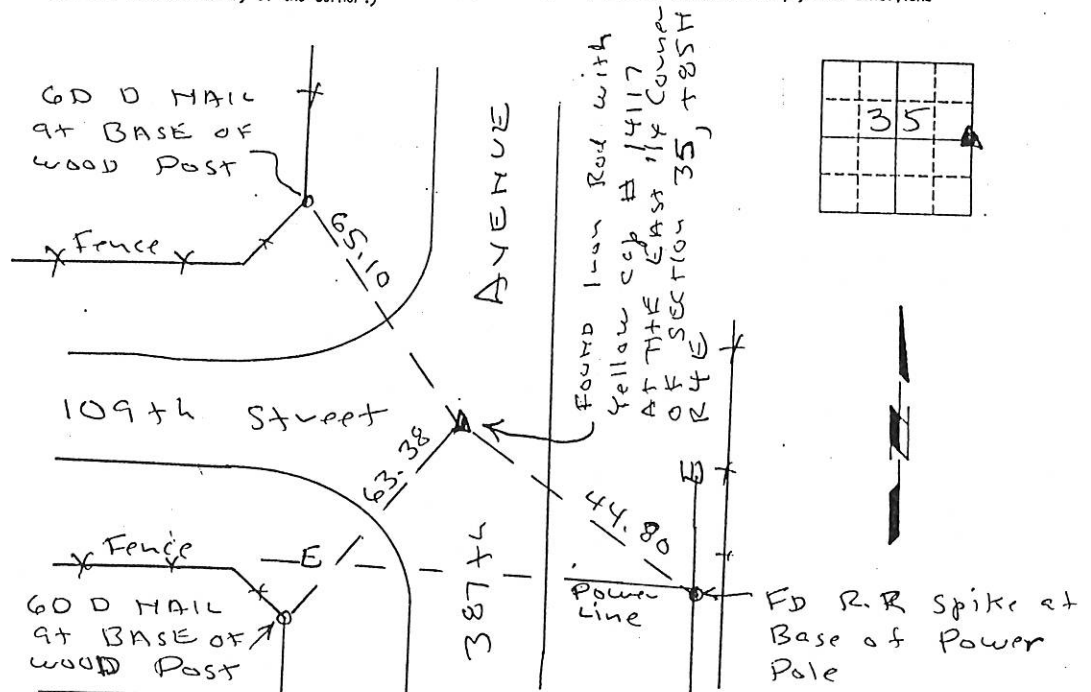 60 D NAIL
at BASE OF
WOOD Post
Fence
65.10
AVENUE
Found Iron Rod with
Yellow cap # 14117
AT THE EAST 1/4 Corner
OF SECTION 35, T85N
R4E
35
109th Street
63.38
44.80
E
N
Fence
E
60 D NAIL
at BASE OF
WOOD Post
387th
Power
Line
FD R.R Spike at
Base of Power
Pole